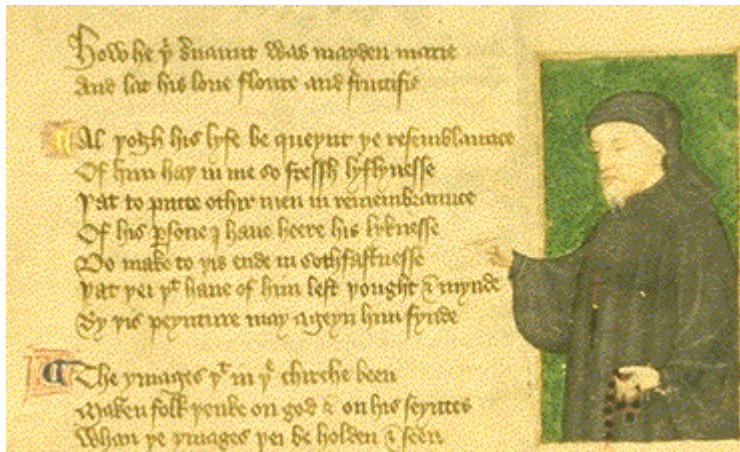 How he þͥ s̕uaunt was mayden marie
And lat his loue floure and fructifie
Al þogh his lyfe be queynt þe resemblaunce
Of him haþ in me so fressh lyflynesse
Þat to putte othir men in remembraunce
Of his ꝑsone I haue heere his lyknesse
Do make to þis ende in sothfastnesse
Þat þei þͭ haue of him lest þought & mynde
By þis peynture may ageyn him fynde
The ymages þͭ in þͤ chirche been
Maken folk þenke on god & on his seyntes
Whan þe ymages þei be holden & seen